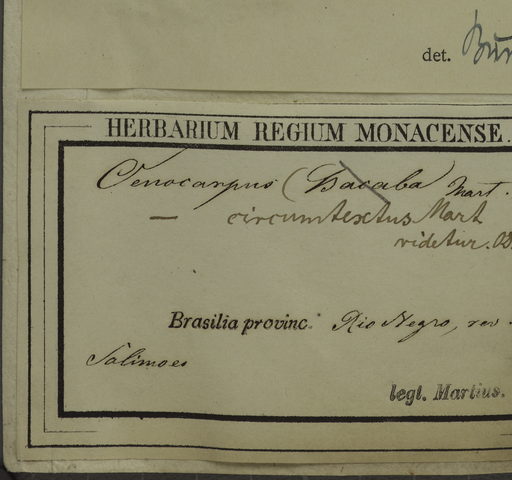 det.
HERBARIUM REGIUM MONACENSE.
Oenocarpus (Bacaba) Mart.
— circumtextus Mart
videtur.
Brasilia provinc. Rio Negro,
Sālimoes
legt. Martius.